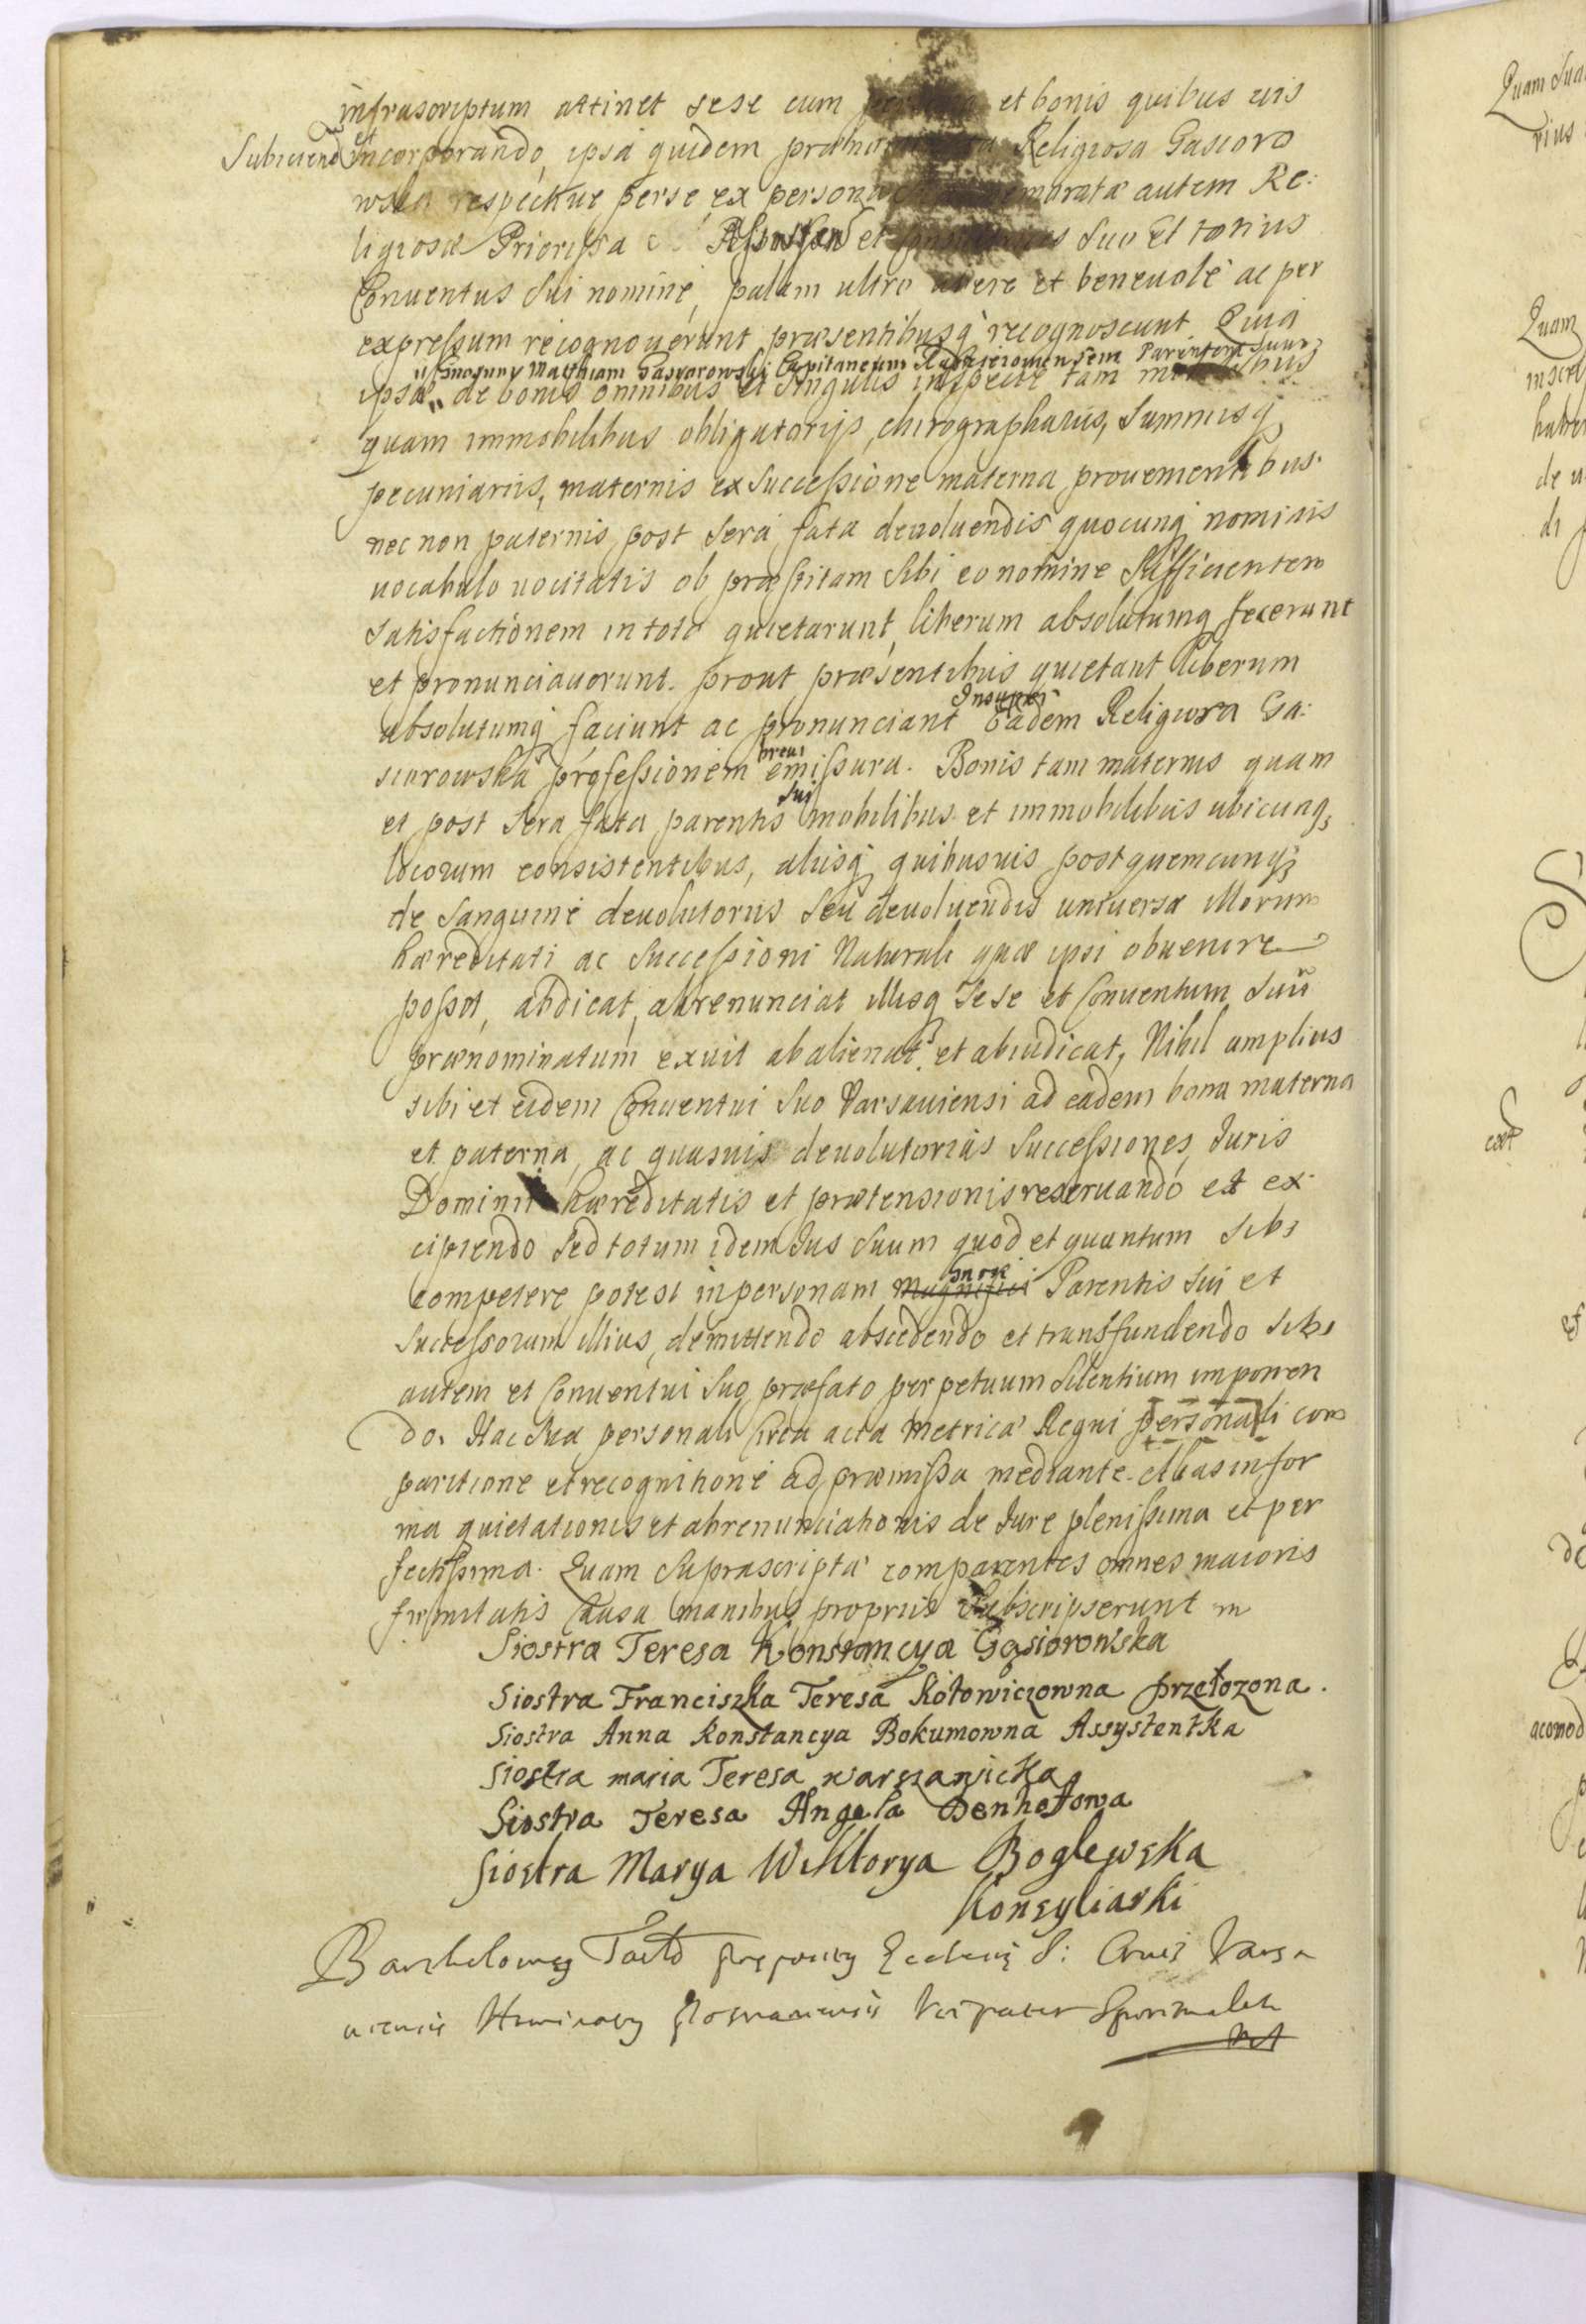 infrascriptum attinet sese cum persona et bonis quibus uis
Subiciend et incorporando, ipsa quidem Religiosa Gasioro
wska respectiue per se, ex persona memoratæ autem Re:
ligiosæ Priorissa et suo Et totius
Conuentus sui nomine, palam ultro libere et beneuole ac per
expressum recognouerunt præsentibusq recognoscunt. Quia
Gnosum Mathiam Gasiorowski Capitaneum Parentem suum
ipsæ de bonis omnibus et singulis in specie tam mobilibus
quam immobilibus obligatorijs, chirographarijs, Summisq
pecuniariis, maternis ex Successione materna prouenientibus
nec non paternis, post sera fata deuoluendis quocunq nominis
uocabulo uocitatis ob præstitam sibi eo nomine sufficientem
satisfactionem in toto quietarunt, liberum absolutumq fecerunt
et pronunciauerunt. prout præsentibus quietant liberum
absolutumq faciunt ac pronunciant Insuper Eadem Religiosa Ga:
siorowska professionem breui emissura. Bonis tam maternis quam
et post sera fata parentis sui mobilibus et immobilibus ubicunq
locorum consistentibus, aliisq quibusuis post quemcunq
de sanguine deuolutoriis seu deuoluendis uniuersæ illorum
hæreditati ac Successioni Naturali quæ ipsi obuenire
posset, abdicat, abrenunciat illisq sese et Conuentum Suũ
prænominatum exuit abalienat et abiudicat, Nihil amplius
sibi et eidem Conuentui suo Varsauiensi ad eadem bona materna
et paterna, ac quasuis deuolutorias Successiones, Juris
Dominii hæreditatis et prætensionis reseruando et ex
cipiendo Sed totum idem Jus suum quod et quantum sibi
competere potest in personam Magnifici Gnosi Parentis sui et
Successorum illius, demittendo abscedendo et transfundendo sibi
autem et Conuentui Suo præfato perpetuum Silentium imponen
do. Hac sua personali circa acta Metrica Regni personali com
paritione et recognitione ad præmissa mediante. Et has in for
ma quietationis et abrenunciationis de Jure plenissima et per
fectissima. Quam suprascripta comparentes omnes maioris
firmitatis Causa manibus propriis Subscripserunt m
Siostra Teresa Konstancya Gąsiorowska
Siostra Franciszka Teresa Kotowiczowna przełozona.
Siostra Anna Konstancya Bokumowna Assystentka
Siostra maria Teresa warszawicka
Siostra Teresa Angela Denhofowa
Siostra Marya Wiktorya Boglewska
Konsyliarki
Bartholomeg Tarło præposity Ecclesię S: Crucis Varsa
uiensis Posnaniensis